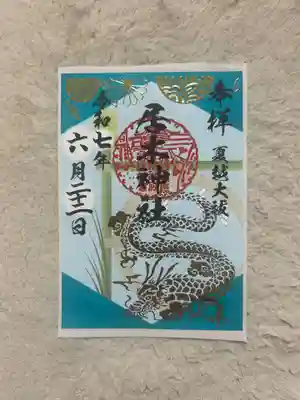 奉拝
夏越大祓
居木神社
令和七年
六月二十一日